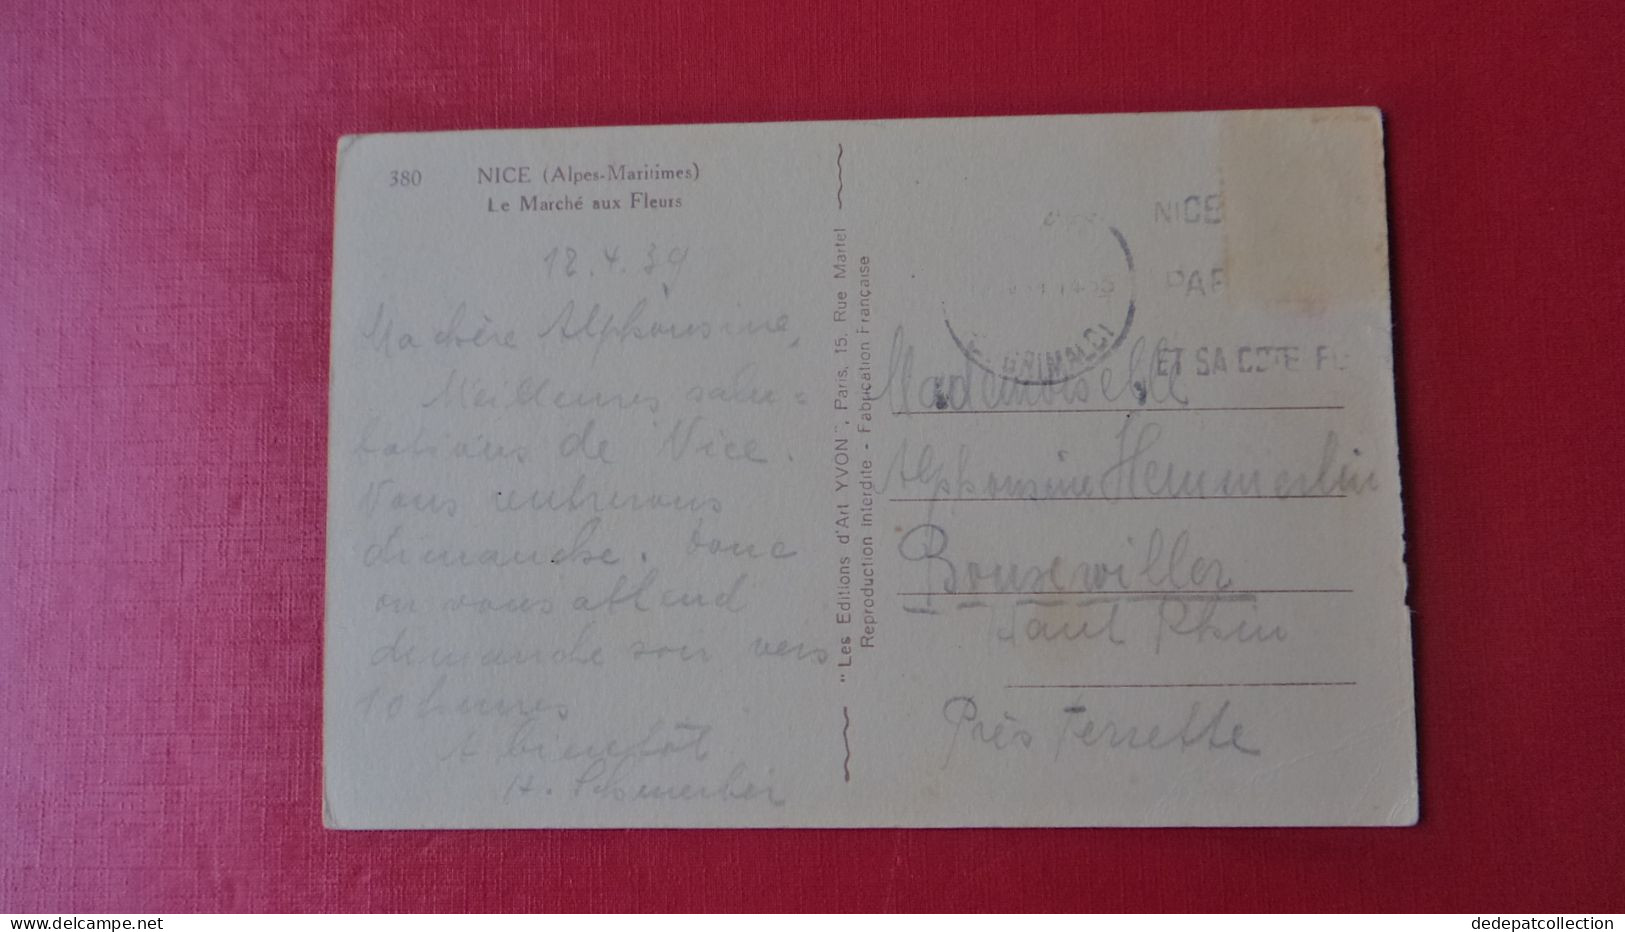 380 NICE (Alpes-Maritimes)
Le Marché aux Fleurs
12.4.39
Ma chère Alphonsine,
Meilleures salu=
tations de Nice.
Nous rentrerons
dimanche. Donc
on vous attend
dimanche soir vers
10 heures
A bientôt
H.
"Les Editions d'Art YVON", Paris, 15, Rue Martel
Reproduction interdite - Fabrication Française
NICE
PAR
ET SA COTE FL
GRIMALDI
Mademoiselle
Alphonsine Hemmerlin
Bouxwiller
Haut Rhin
Près Ferrette
dedepatcollection